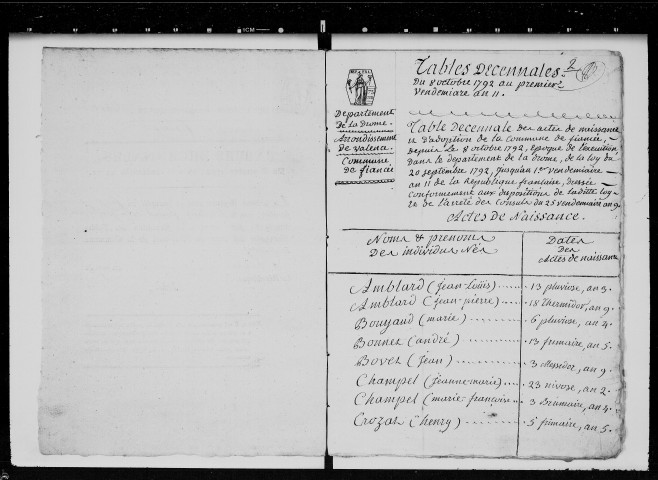 Tables Decennales.
2
Du 8 octobre 1792 au premier
Vendemiaire an 11.
Departement
de la Drome.
Arrondissement
de Valence
Commune
de fiancée
Table Decennale des actes de naissance
et d'adoption de la Commune de fiancée,
depuis Le 8 octobre 1792, Epoque de l'execution
dans le departement de la Drome, de la loy du
20 septembre 1792, jusqu'au 1er vendemiaire
an 11 de la Republique francaise, dressée
conformement aux dispositions de laditte loy
et de l'arreté des Consuls du 25 vendemiaire an 9.
Actes De Naissance.
Noms & prenoms
Des individus Nés
Dates
Des
Actes de naissance
Amblard (jean-Louïs) ...... 13 pluviose, an 5.
Amblard (jean-pierre) .... 18 Thermidor, an 9.
Bouyaud (marie) ........ 6 pluviose, an 4.
Bonnet (andré) ........ 13 frimaire, an 5.
Bovet (jean) ........ 3 Messidor, an 9.
Champel (jeanne-marie) ..... 23 nivose, an 2.
Champel (marie-francoise ... 3 Brumaire, an 4.
Crozat (henry) ........ 5 frimaire, an 5.